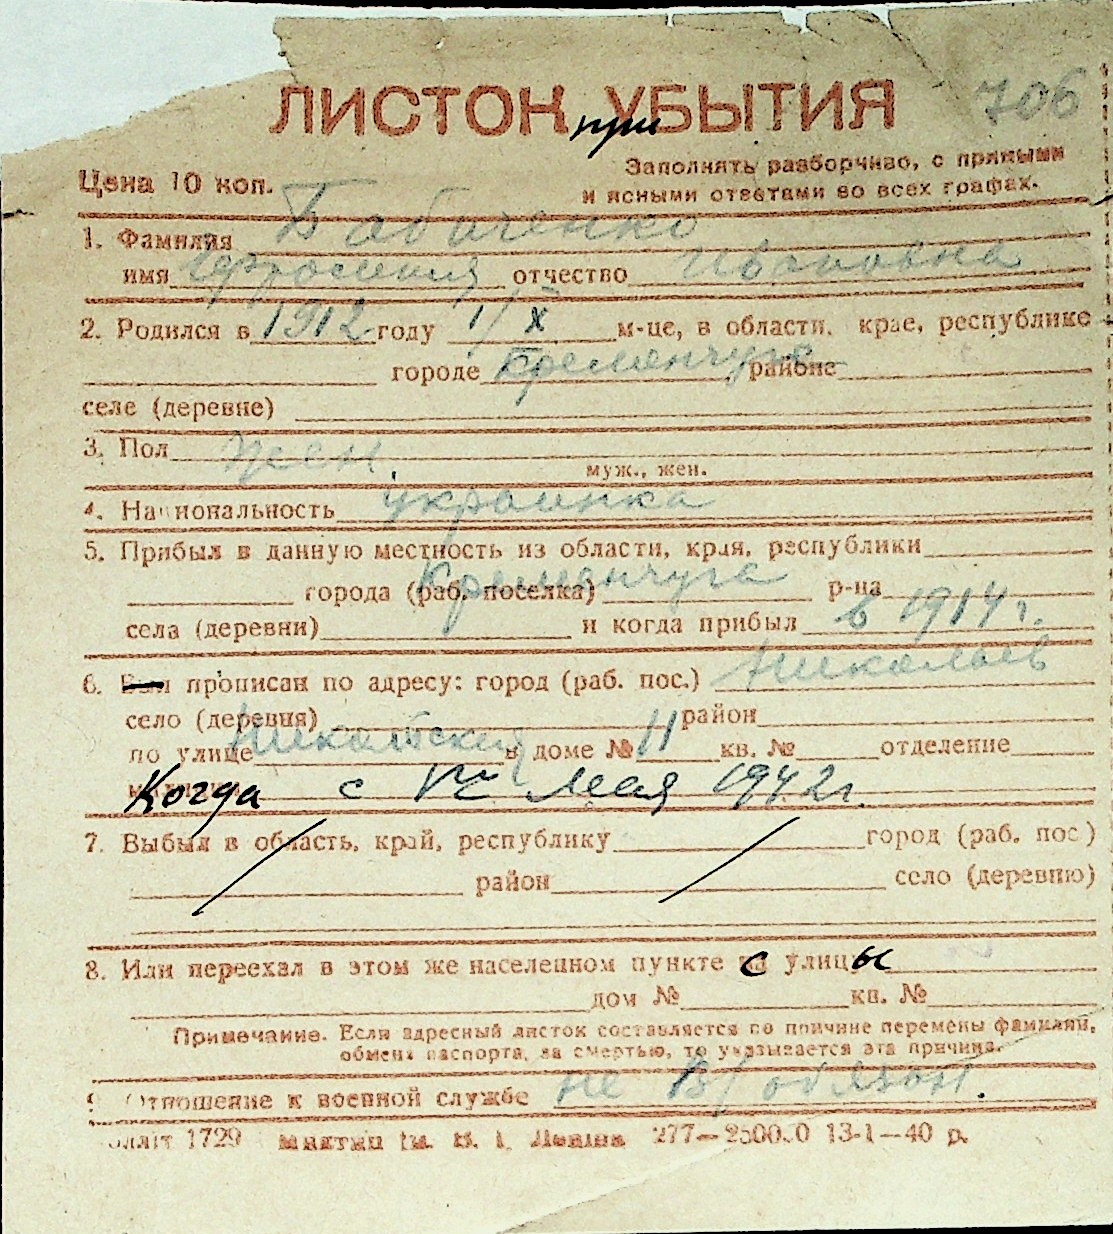 706
ЛИСТОК при УБЫТИЯ
Цена 10 коп.
Заполнять разборчиво, с прямыми
и ясными ответами во всех графах.
1. Фамилия Бабаченко
имя Ефросиния отчество Ивановна
2. Родился в 1912 году 1/X м-це, в области, крае, республике
городе Кременчуге районе
селе (деревне)
3. Пол жен.
муж., жен.
4. Национальность украинка
5. Прибыл в данную местность из области, края, республики
города (раб. поселка) Кременчуга р-на
села (деревни) и когда прибыл в 1914 г.
6. прописан по адресу: город (раб. пос.) Николаев
село (деревня) район
по улице в доме № 11 кв. № отделение
Когда с мая 1942 г.
7. Выбыл в область, край, республику город (раб. пос.)
район село (деревню)
8. Или переехал в этом же населенном пункте с улицы
дом № кв. №
Примечание. Если адресный листок составляется по причине перемены фамилии,
обмена паспорта, за смертью, то указывается эта причина.
9. Отношение к военной службе не в/обязан.
1729 277—250000 13-1—40 р.